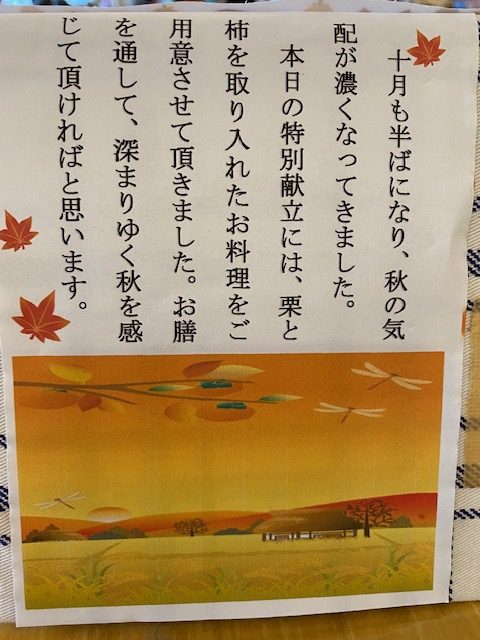 十月も半ばになり、秋の気
配が濃くなってきました。
本日の特別献立には、栗と
柿を取り入れたお料理をご
用意させて頂きました。お膳
を通して、深まりゆく秋を感
じて頂ければと思います。